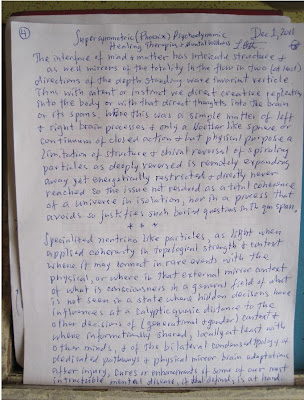 ④ Supersymmetric (Phoenix) Psychodynamic Dec 1, 2011
Healing Therapies + Mutations
The interface of mind + matter has intricate structure +
as well mirrors of the totality in the flow in two (at least)
directions of the depth standing wave
Thus with intent or instinct we direct creative repletion
into the body or with that direct thoughts into the brain
or its spans. Where this was a simple matter of left
+ right brain processes + only a Voether like sphere or
continuum of closed action + but physical purpose a
limitation of structure + chiral reversal of spiraling
particles as deeply inverted is remotely expanding
away yet energetically restricted + directly never
reached so the issue not resolved as a total coherence
of a universe in isolation, nor in a process that
avoids so justifies such buried questions in its qm span.
* * *
Specialized neutrino like particles, as light when
applied coherently in topological strength + context
where it may connect in rare events with the
physical, or where in that external mirror context
in what is consciousness in a general field of what
is not seen in a state where hidden decisions have
influences at a calyptic quasic distance to the
other decisions of (generational + gender) context +
where informationally shared, locally at least with
other minds, + of the bilateral condensed
dedicated pathways + physical mirror brain adaptations
after injury, cures or enhancements of some of our most
intractable mental disease, is at hand